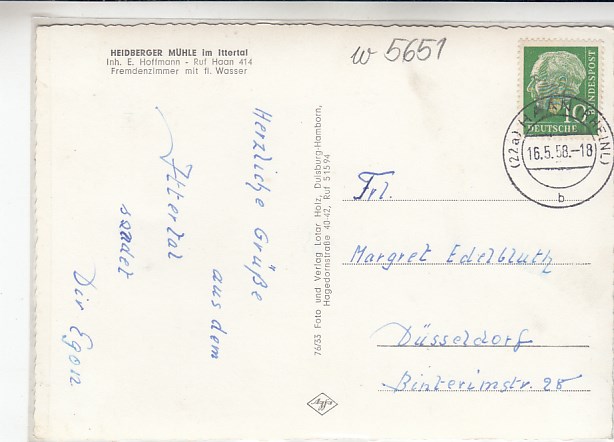 HEIDBERGER MÜHLE im Ittertal
Inh. E. Hoffmann - Ruf Haan 414
Fremdenzimmer mit fl. Wasser
W 5651
Herzliche Grüße
aus dem
Ittertal
sendet
Dir Egon
76/33 Foto und Verlag Lotar Holz, Duisburg-Hamborn,
Hagedornstraße 40-42, Ruf 51594
Agfa
10
DEUTSCHE
BUNDESPOST
(22a) HAAN (RHEINL)
16.5.58.-18
b
Frl.
Margret Edelbluth
Düsseldorf
Binterimstr. 28